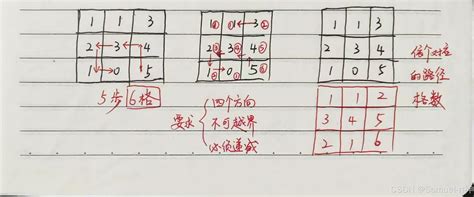 1 1 3
2 3 4
1 0 5
1 1 3
2 3 4
1 0 5
1 1 3
2 3 4
1 0 5
5步 6格
要求
四个方向
不可越界
必须递减
每个对应
的路径
格数
1 1 2
3 4 5
2 1 6